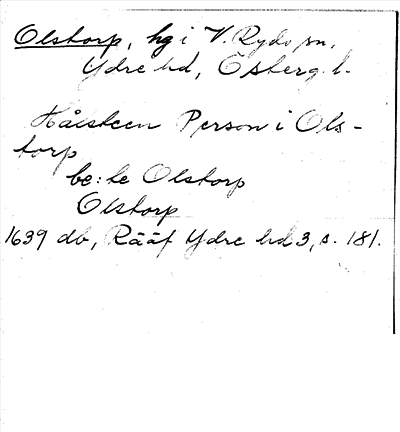 Olstorp, hg i V. Ryds sn,
Ydre hd, Östergl.
Håksteen Person i Ols-
torp
be: te Olstorp
Olstorp
1639 db, Rääf Ydre hd 3, s. 181.